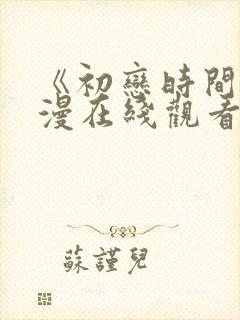 《初戀時間
漫在綫觀看
蘇謹兒